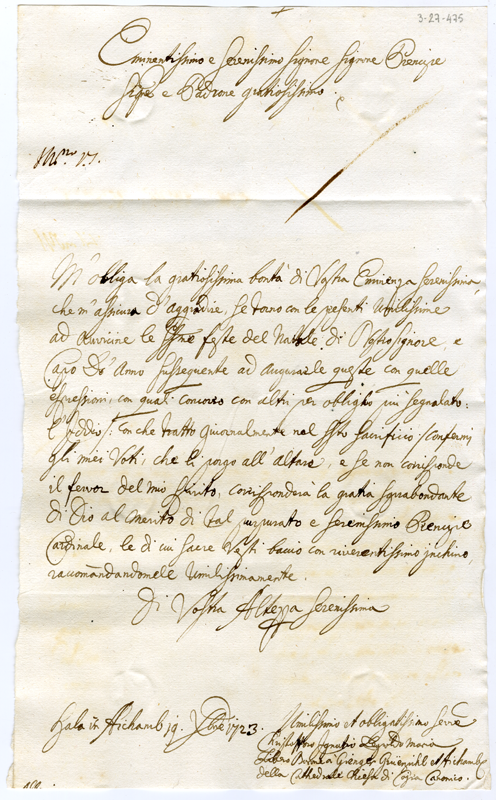 3-27-475
Eminentissimo e Serenissimo Signore Signore Prencipe
Sigre e Padrone gratiosissimo.
M'obliga la gratiosissima bontà di Vostra Eminenza Serenissima,
che m'assicura d'aggradire, se torno con le presenti umilissime
ad le Ssme feste del Natale di Nostro Signore, e
Capo d'Anno susseguente ad augurarle queste con quelle
espressioni, con quali concorro con altri per obligho più segnalato:
E Iddio /: con che tratto giornalmente nel Ssto Sacrificio / confermi
gli miei Voti, che li porgo all'altare, e se non corrisponde
il fervor del mio spirito, corrisponderà la gratia soprabondante
di Dio al merito di tal purpurato e Serenissimo Prencipe
Cardinale, le di cui sacre Vesti bacio con riverentissimo inchino,
raccomandandomele umilissimamente.
Di Vostra Altezza Serenissima
Hala in Aichamb 19. Xbre 1723.
Umilissimo et obligatissimo Serre
Maria
et Aichamb
della Cathedrale Chiesa di Canonico.